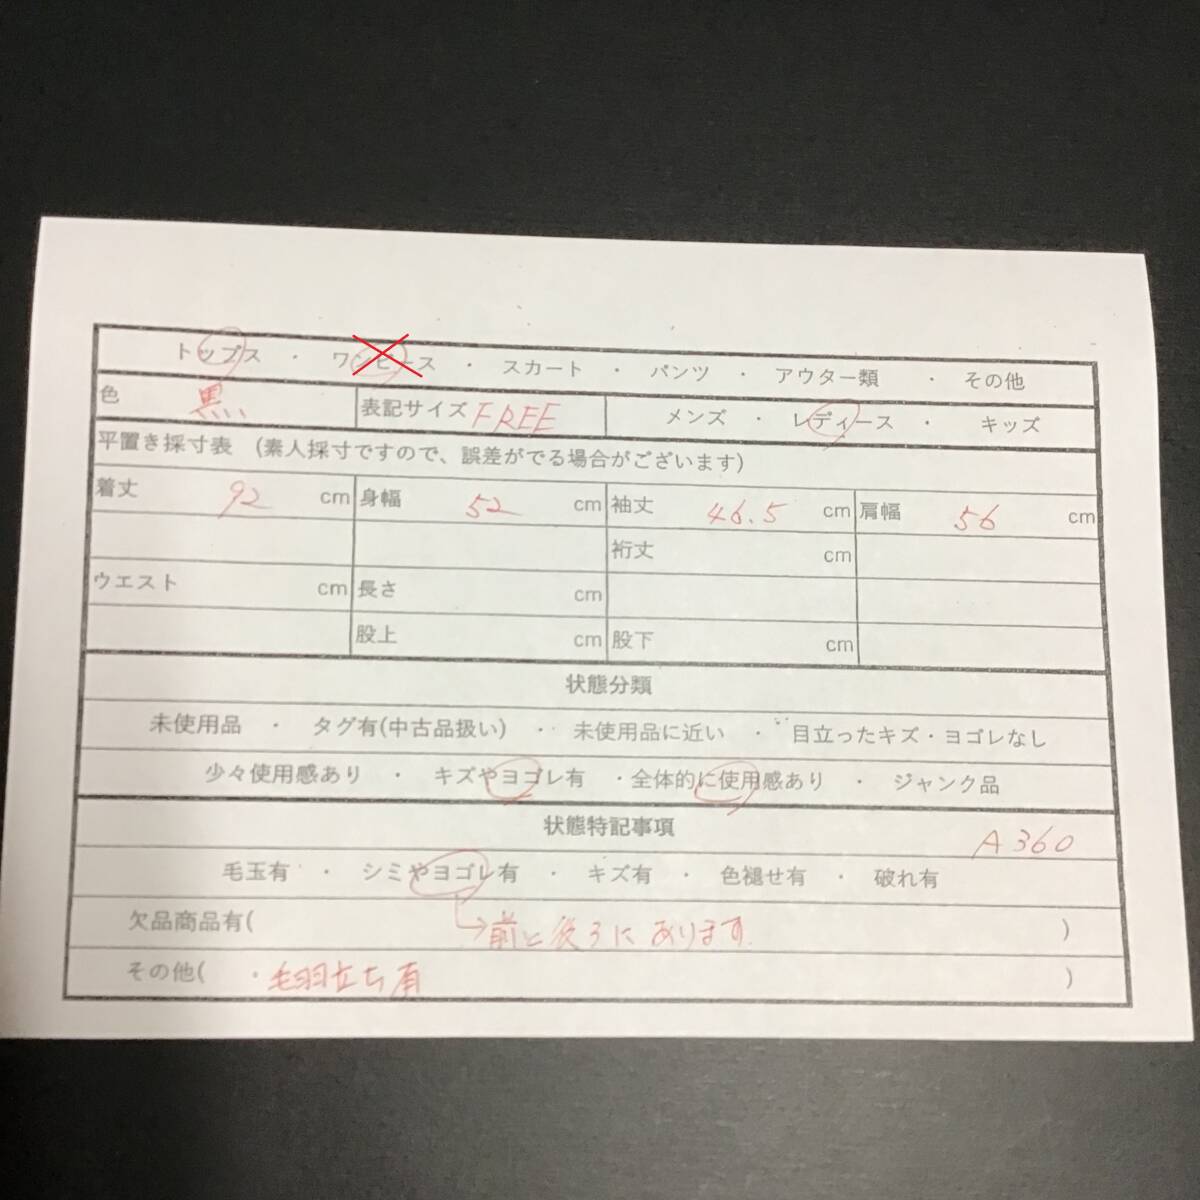 トップス ・ ワンピース ・ スカート ・ パンツ ・ アウター類 ・ その他
色 黒 表記サイズ FREE メンズ ・ レディース ・ キッズ
平置き採寸表 (素人採寸ですので、誤差がでる場合がございます)
着丈 92 cm 身幅 52 cm 袖丈 46.5 cm 肩幅 56 cm
裄丈 cm
ウエスト cm 長さ cm
股上 cm 股下 cm
状態分類
未使用品 ・ タグ有(中古品扱い) ・ 未使用品に近い ・ 目立ったキズ・ヨゴレなし
少々使用感あり ・ キズやヨゴレ有 ・全体的に使用感あり ・ ジャンク品
状態特記事項 A360
毛玉有 ・ シミやヨゴレ有 ・ キズ有 ・ 色褪せ有 ・ 破れ有
欠品商品有( →前と後ろにあります )
その他( ・毛羽立ち有 )